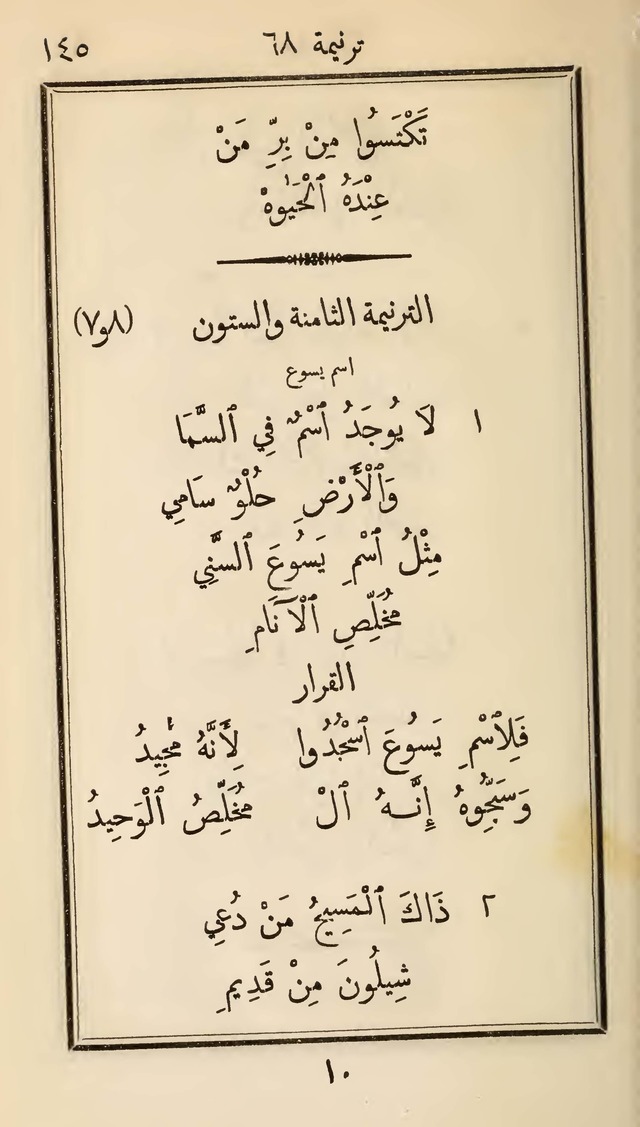 ترنيمة ٦٨ ١٤٥
تَكْتَسُوا مِنْ بِرِّ مَنْ
عِنْدَهُ ٱلْحَيٰوهْ
الترنيمة الثامنة والستون (٨و٧)
اسم يسوع
١ لَا يُوجَدُ ٱسْمٌ فِي ٱلسَّمَا
وَٱلْأَرْضِ حُلْوٌ سَامِي
مِثْلُ ٱسْمِ يَسُوعَ ٱلسَّنِي
مُخَلِّصِ ٱلْآنَامِ
القرار
فَلِٱسْمِ يَسُوعَ ٱسْجُدُوا لِأَنَّهُ مَجِيدُ
وَسَبِّحُوهُ إِنَّـهُ ٱلْ مُخَلِّصُ ٱلْوَحِيدُ
٢ ذَاكَ ٱلْمَسِيحُ مَنْ دُعِي
شِيلُونَ مِنْ قَدِيمِ
١٠